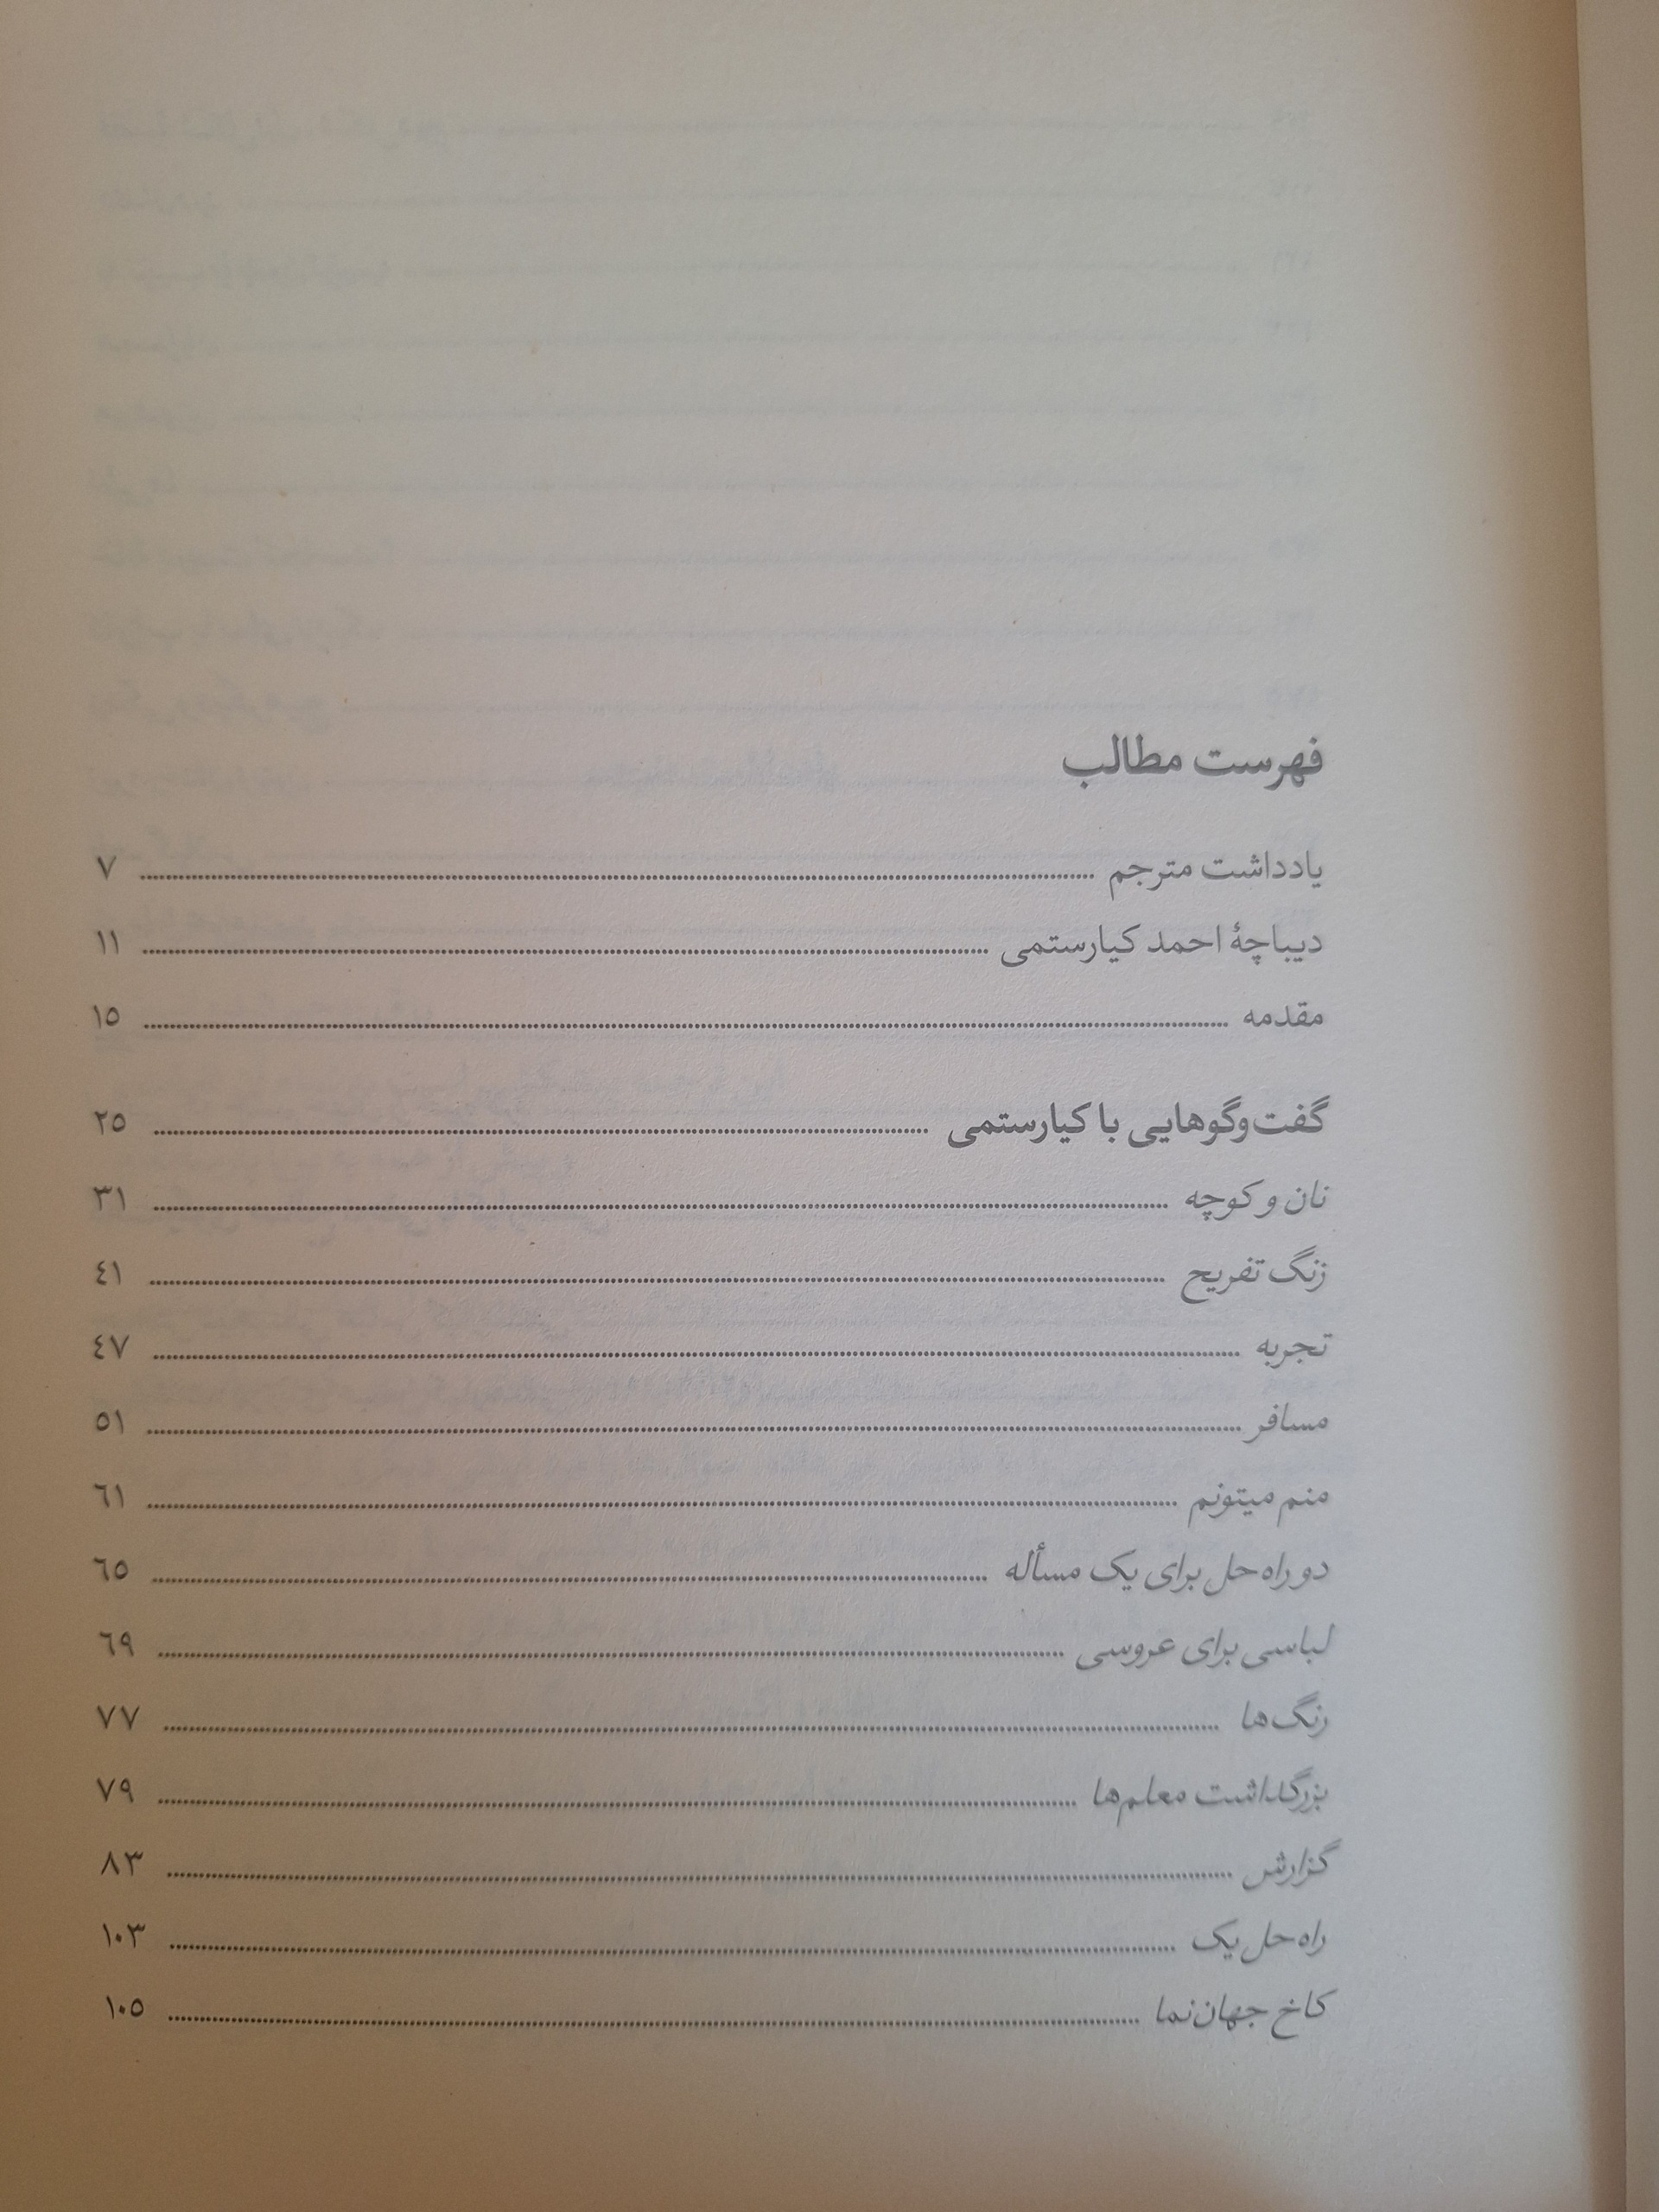 فهرست مطالب
یادداشت مترجم ........ ۷
دیباچهٔ احمد کیارستمی ........ ۱۱
مقدمه ........ ۱۵
گفت‌وگوهایی با کیارستمی ........ ۲۵
نان و کوچه ........ ۳۱
زنگ تفریح ........ ٤۱
تجربه ........ ٤۷
مسافر ........ ۵۱
منم میتونم ........ ٦۱
دو راه‌حل برای یک مسأله ........ ٦۵
لباسی برای عروسی ........ ٦۹
رنگ‌ها ........ ۷۷
بزرگداشت معلم‌ها ........ ۷۹
گزارش ........ ۸۳
راه‌حل یک ........ ۱۰۳
کاخ جهان‌نما ........ ۱۰۵